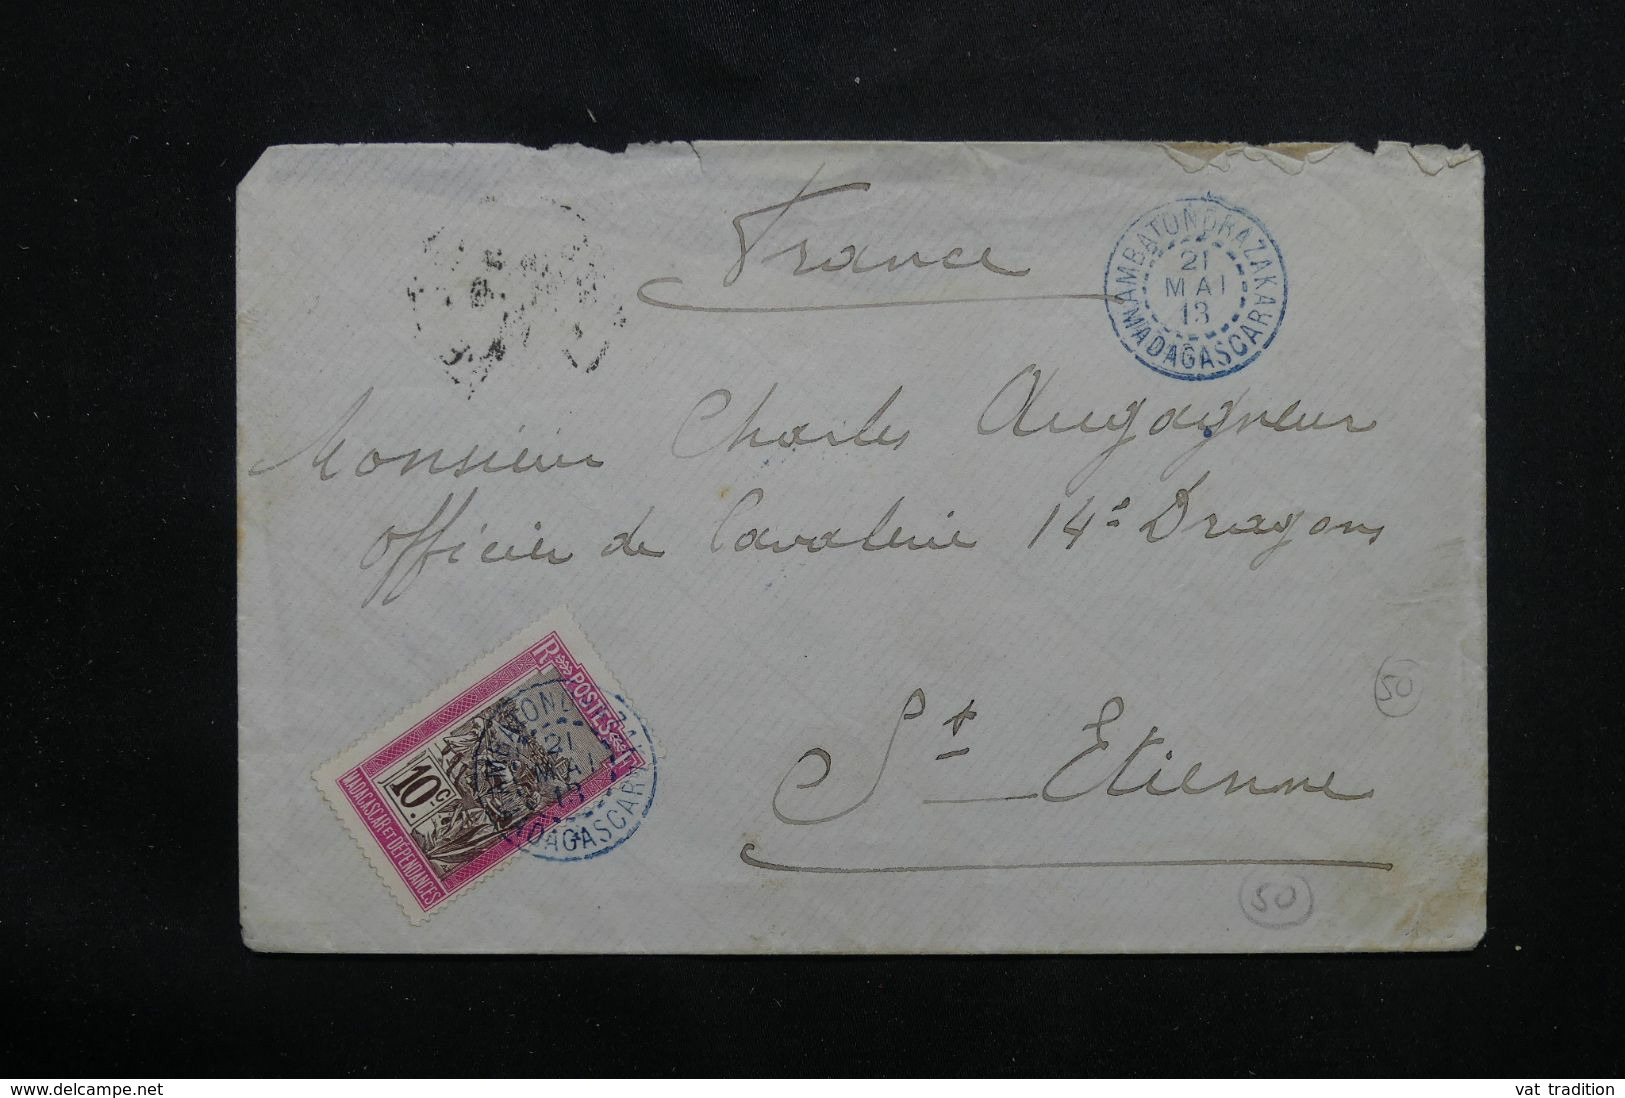 France
AMBATONDRAZAKA
21
MAI
13
MADAGASCAR
Monsieur Charles Augagneur
Officier de Cavalerie 14e Dragons
St Etienne
50
50
RF
POSTES
10 c.
MADAGASCAR ET DÉPENDANCES
21
MAI
13
delcampe.net
vat tradition